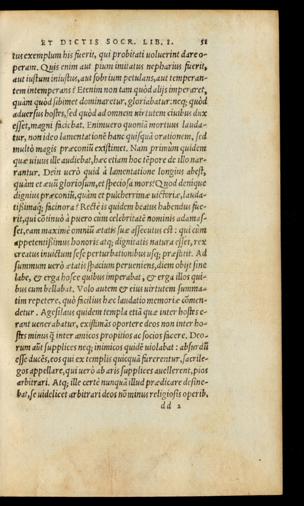 ET DICTIS SOCR. LIB. I. 51
tus exemplum his fuerit, qui probitati uoluerint dare o-
peram. Quis enim aut pium imitatus nepharius fuerit,
aut iustum iniustus, aut sobrium petulans, aut temperan-
tem intemperans? Etenim non tam quòd alijs imperaret,
quàm quòd sibimet dominaretur, gloriabatur: neq; quòd
aduersus hostes, sed quòd ad omnem uirtutem ciuibus dux
esset, magni faciebat. Enimuero quoniã mortuus lauda-
tur, non ideo lamentationẽ hanc quisquã orationem, sed
multò magis præconiũ existimet. Nam primùm quidem
quæ uiuus ille audiebat, hæc etiam hoc tẽpore de illo nar-
rantur. Dein uerò quid à lamentatione longius abest,
quàm et æuũ gloriosum, et speciosa mors? Quid denique
dignius præconiũ, quàm et pulcherrimæ uictoriæ, lauda-
tissimaq; facinora? Rectè is quidem beatus habendus fue-
rit, qui cõtinuò à puero cùm celebritatẽ nominis adamas-
set, eam maximè omniũ ætatis suæ assecutus est: qui cùm
appetentissimus honoris atq; dignitatis natura esset, rex
creatus inuictum sese perturbationibus usq; præstitit. Ad
summum uerò ætatis spacium perueniens, diem obijt sine
labe, & erga hosce quibus imperabat, & erga illos qui-
bus cum bellabat. Volo autem & eius uirtutem summa-
tim repetere, quò facilius hæc laudatio memoriæ cõmen-
detur. Agesilaus quidem templa etiã quæ inter hostes e-
rant uenerabatur, existimãs oportere deos non inter ho-
stes minus q̃ inter amicos propitios ac socios facere. Deo-
rum aũt supplices neq; inimicos quidẽ uiolabat: absurdũ
esse ducẽs, eos qui ex templis quicquã furerentur, sacrile-
gos appellare, qui uerò ab aris supplices auellerent, pios
arbitrari. Atq; ille certè nunquã illud prædicare desine-
bat, se uidelicet arbitrari deos nõ minus religiosis operib.
dd 2